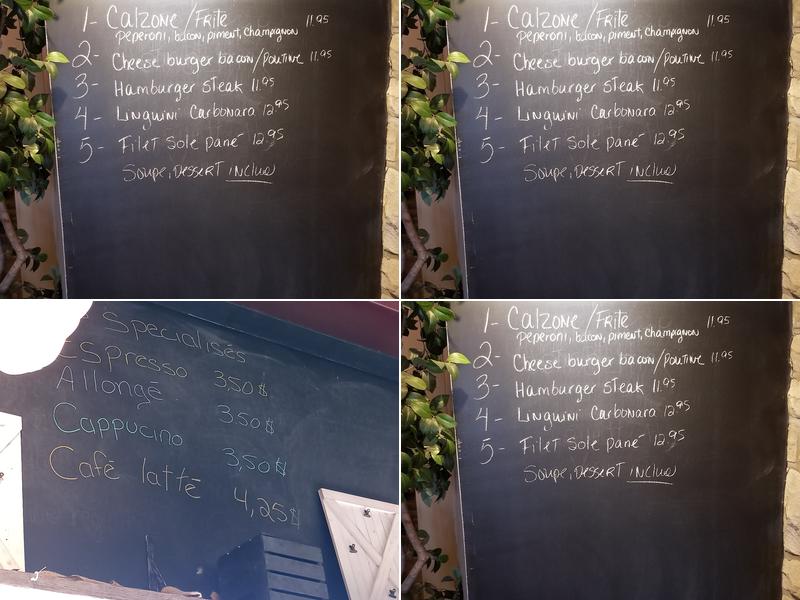 1- Calzone / Frite 11.95
Peperoni, bacon, piment, Champignon
2- Cheese burger bacon / Poutine 11.95
3- Hamburger Steak 11.95
4- Linguini Carbonara 12.95
5- Filet Sole Pané 12.95
Soupe, Dessert inclus
1- Calzone / Frite 11.95
Peperoni, bacon, piment, Champignon
2- Cheese burger bacon / Poutine 11.95
3- Hamburger Steak 11.95
4- Linguini Carbonara 12.95
5- Filet Sole Pané 12.95
Soupe, Dessert inclus
Specialisés
Espresso 3,50 $
Allongé 3.50 $
Cappucino 3,50 $
Café latté 4,25 $
1- Calzone / Frite 11.95
Peperoni, bacon, piment, Champignon
2- Cheese burger bacon / Poutine 11.95
3- Hamburger Steak 11.95
4- Linguini Carbonara 12.95
5- Filet Sole Pané 12.95
Soupe, Dessert inclus